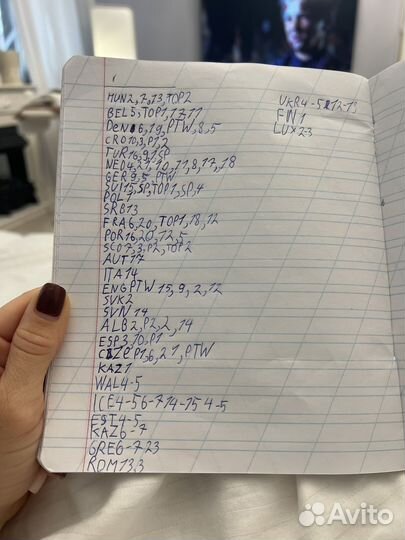 HUN2,7,13,TOP2
BEL5,TOP1,17,11
Den6,19,PTW,8,5
CRO10,3,P1,2
TUR16,9,1,TP
NED4,21,10,11,8,17,,18
GER9,5,PTW
SUI15,SP,TOP1,SP,4
POL1
SRB13
FRA6,20,TOP1,18,12
POR16,20,12,5
SCO7,3,P2,TOP2
AUT17
ITA14
ENG PTW 15,9,2,12
SVK2
SVN14
ALB2,P2,2,14
ESP3,10,P1
CZE P1,6,21,PTW
KAZ1
WAL4-5
ICE4-56-714-15 4-5
EST4-5
KAZ6-7
GRE6-723
ROM13,3
UKR4-5 12-13
FIN1
LUX23
Avito